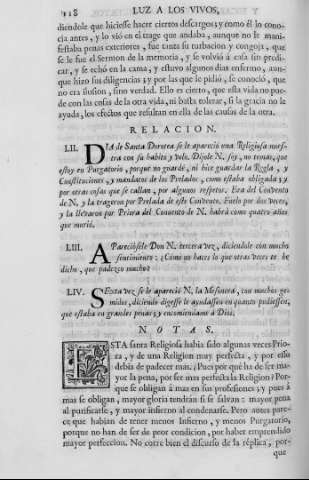 118 LUZ A LOS VIVOS,
diendole que hiciesse hacer ciertos descargos; y como él lo cono-
cia antes, y lo vió en el trage que andaba, aunque no le mani-
festaba penas exteriores, fue tanta su turbacion y congoja, que
se le fue el Sermon de la memoria, y se volvió a casa sin predi-
car, y se echó en la cama, y estuvo algunos dias enfermo, aun-
que hizo sus diligencias; y por las que le pidió, se conoció, que
no era ilusion, sino verdad. Ello es cierto, que esta vida no pue-
de con las cosas de la otra vida, ni basta tolerar, si la gracia no le
ayuda, los efectos que resultan en ella de las causas de la otra.
RELACION.
LII. DIA de Santa Dorotea se le apareció una Religiosa nues-
tra con su habito y velo. Dijole N. soy, no temas, que
estoy en Purgatorio, porque no guardé, ni hice guardar la Regla, y
Constituciones, y mandatos de los Prelados, como estaba obligada; y
por otras cosas que se callan, por algunos respetos. Era del Convento
de N. y la trageron por Prelada de este Convento. Fuelo por dos veces,
y la llevaron por Priora del Convento de N. habrá como quatro años
que murió.
LIII. APareciósele Don N. tercera vez, diciendole con mucho
sentimiento: ¿Como no haces lo que otras veces te he
dicho, que padezco mucho?
LIV. SExta vez se le apareció N. la Mesonera, con muchos ge-
midos, diciendo digesse le ayudassen en quanto pudiessen,
que estaba en grandes penas; y encomiendame á Dios.
NOTAS.
ESTA santa Religiosa habia sido algunas veces Prio-
ra, y de una Religion muy perfecta, y por esso
debia de padecer mas. ¿Pues por qué ha de ser ma-
yor la pena, por ser mas perfecta la Religion? ¿Por-
que se obligan á mas en sus professiones; y pues á
mas se obligan, mayor gloria tendrán si se salvan: mayor pena
al purificarle, y mayor infierno al condenarse. Pero antes pare-
ce que habian de tener menos Infierno, y menos Purgatorio,
porque no han de ser de peor condicion, por haber emprendido
mayor perfeccion. No corre bien el discurso de la réplica, por-
que